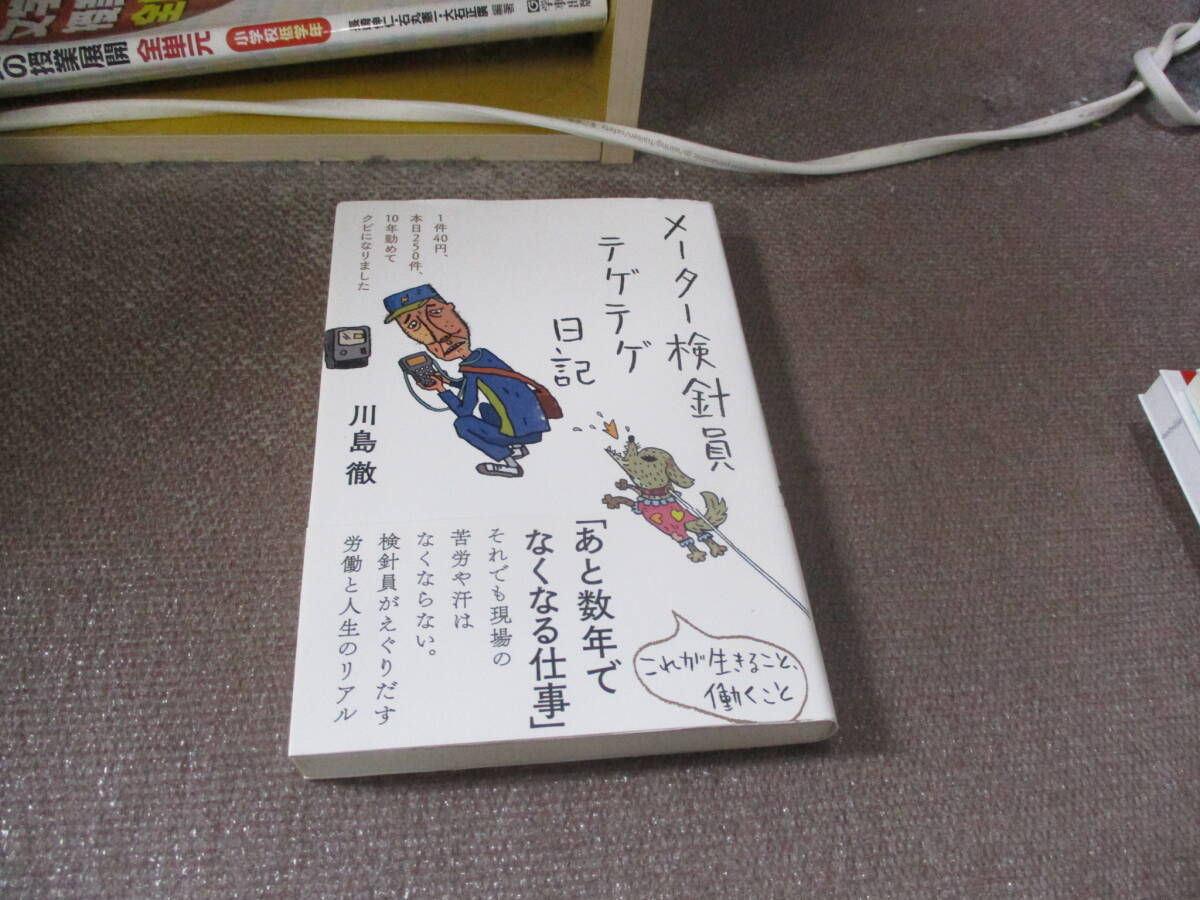 の授業展開 全単元 小学校低学年
メーター検針員
テゲテゲ
日記
1件40円、
本日250件、
10年勤めて
クビになりました
川島徹
「あと数年で
なくなる仕事」
それでも現場の
苦労や汗は
なくならない。
検針員がえぐりだす
労働と人生のリアル
これが生きること、
働くこと